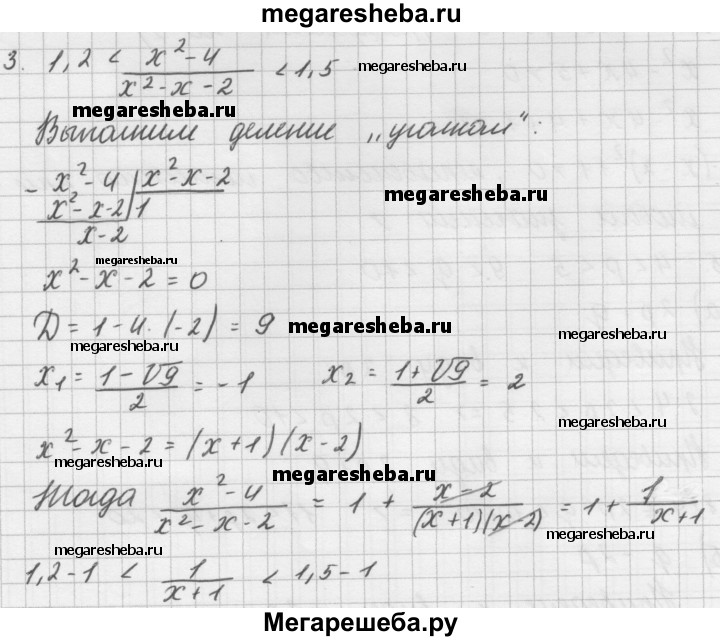 megaresheba.ru
3. 1,2 < (x² - 4)/(x² - x - 2) < 1,5
megaresheba.ru
megaresheba.ru
Выполним деление „уголком":
- x² - 4 | x² - x - 2
x² - x - 2 | 1
megaresheba.ru
x - 2
megaresheba.ru
x² - x - 2 = 0
Д = 1 - 4 · (-2) = 9
megaresheba.ru
megaresheba.ru
megaresheba.ru
x₁ = (1 - √9)/2 = -1     x₂ = (1 + √9)/2 = 2
megaresheba.ru
x² - x - 2 = (x + 1)(x - 2)
megaresheba.ru
megaresheba.ru
Тогда (x² - 4)/(x² - x - 2) = 1 + (x - 2)/((x + 1)(x - 2)) = 1 + 1/(x + 1)
megaresheba.ru
megaresheba.ru
1,2 - 1 < 1/(x + 1) < 1,5 - 1
Мегарешеба.ру